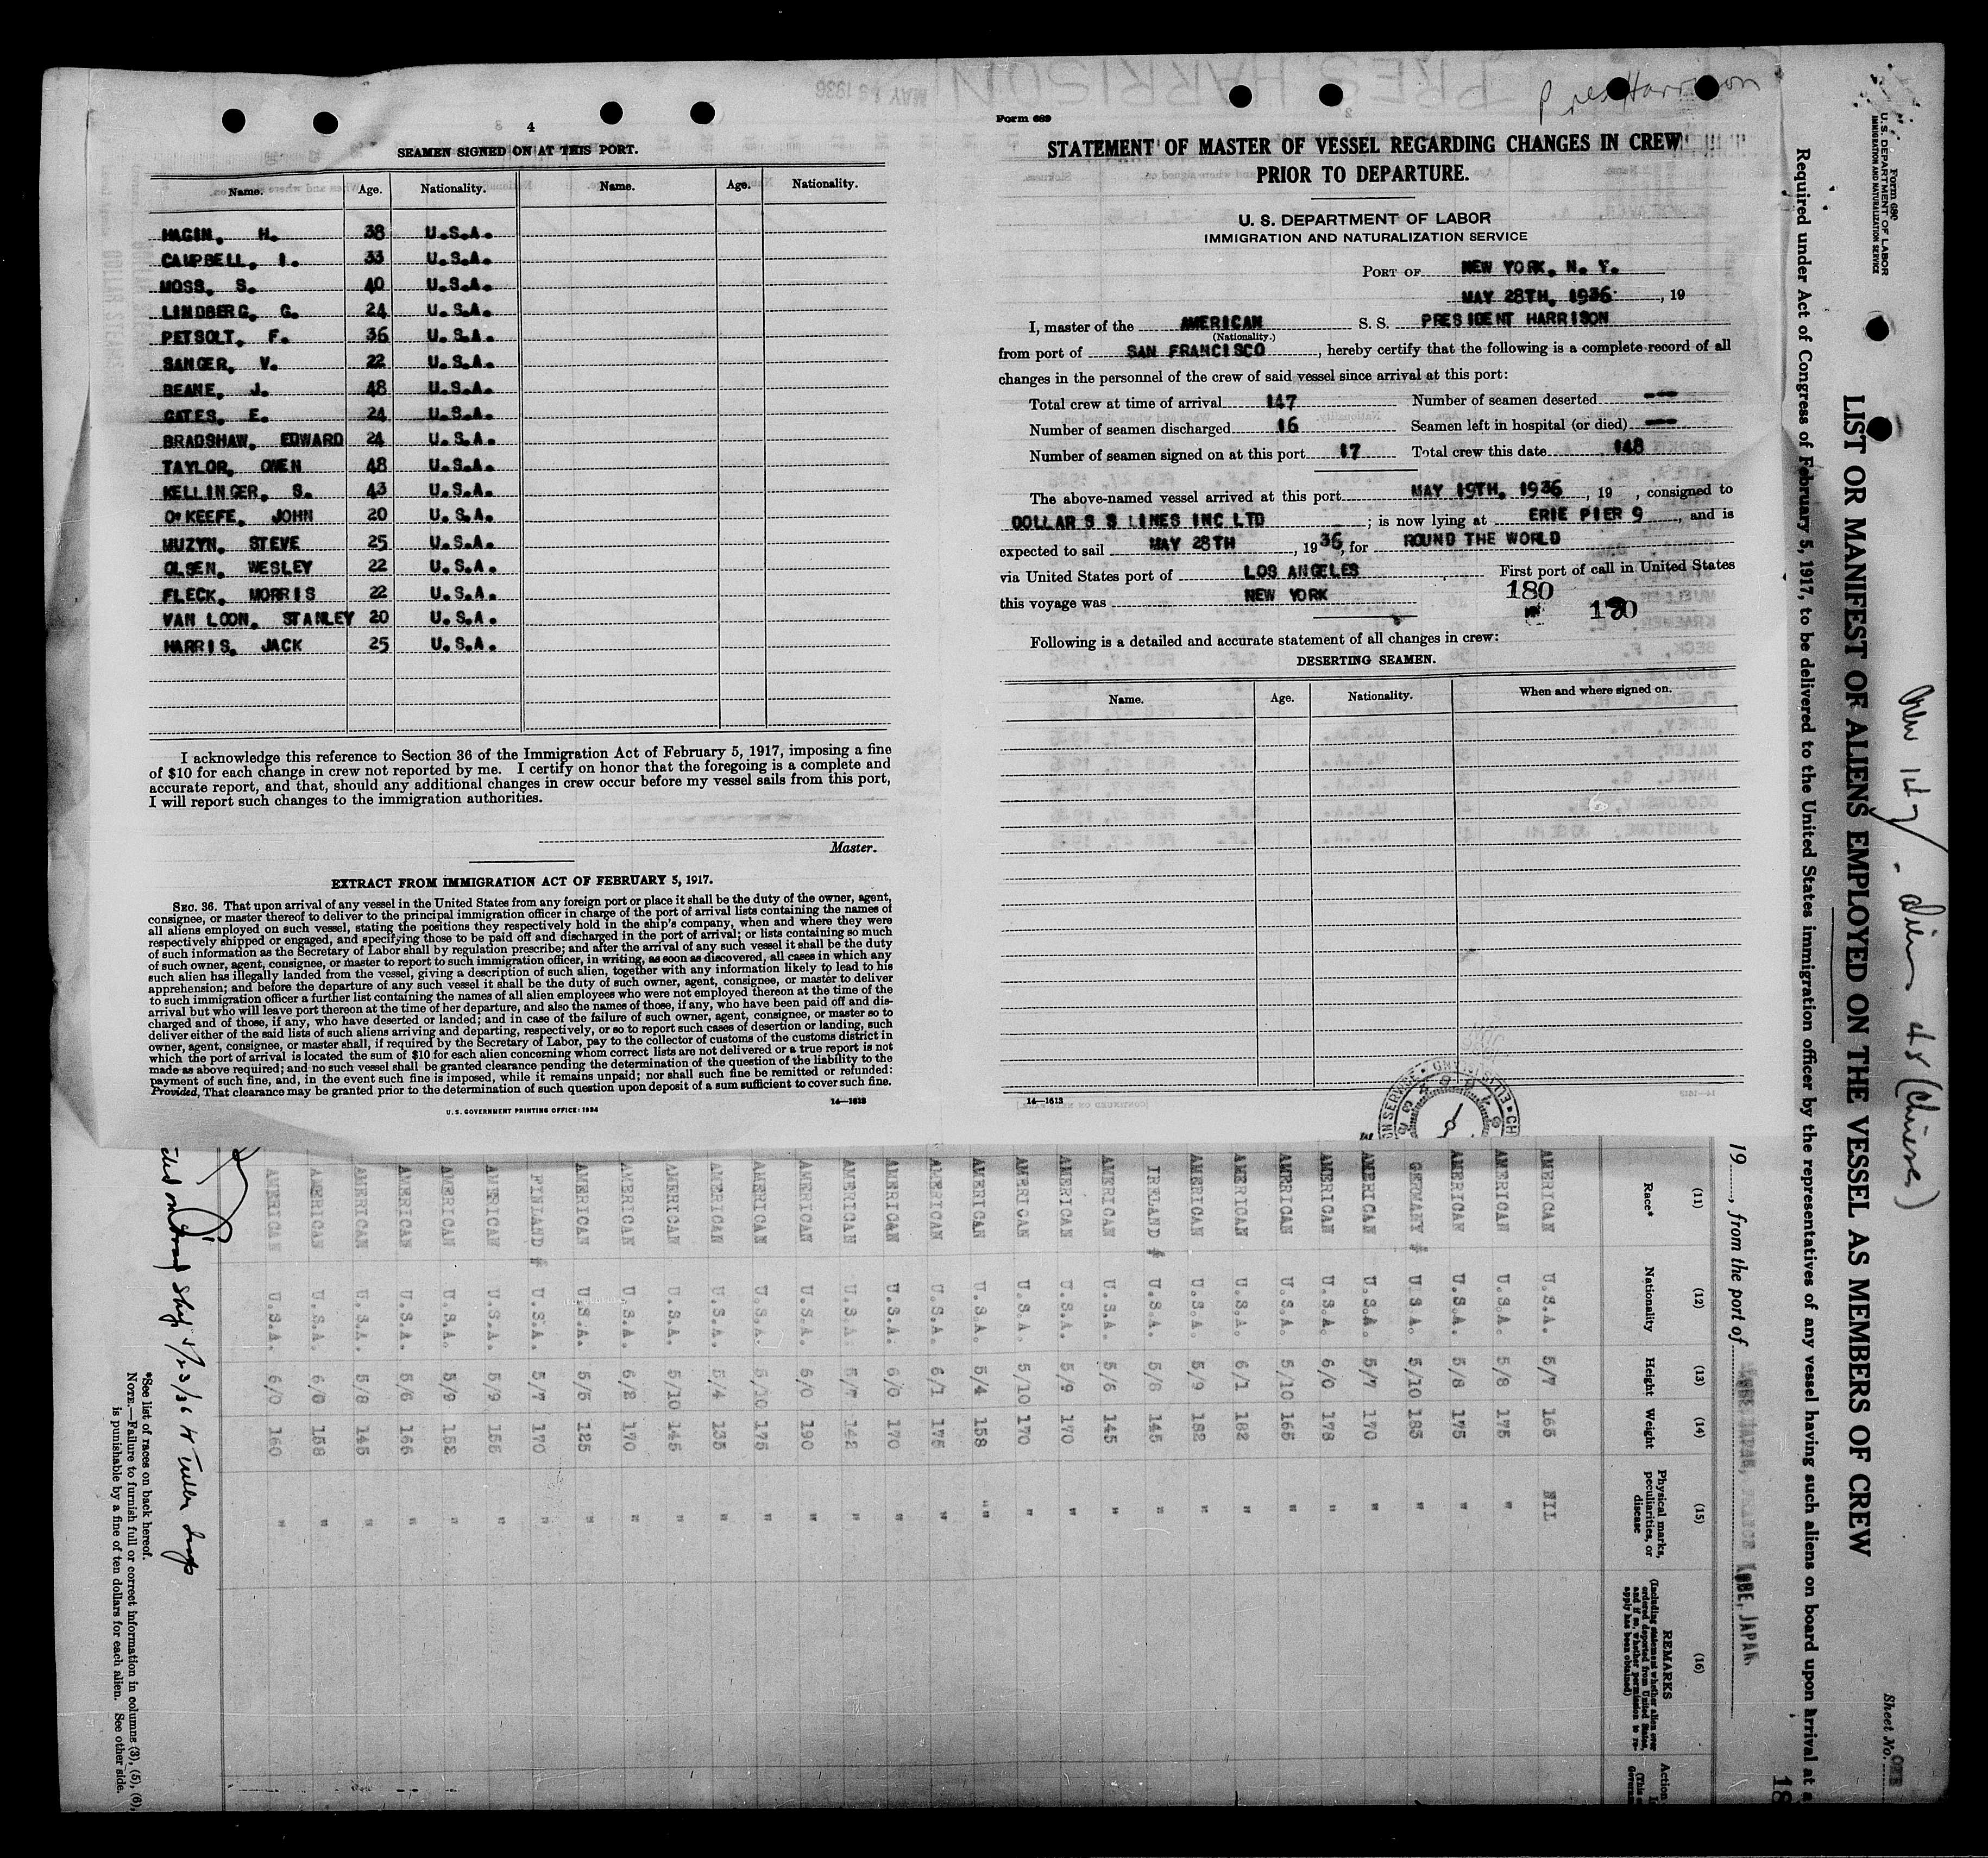 4
SEAMEN SIGNED ON AT THIS PORT.
Name. Age. Nationality. Name. Age. Nationality.
HAGIN, H. 38 U.S.A.
CAMPBELL, I. 33 U.S.A.
MOSS, S. 40 U.S.A.
LINDBERG, G. 24 U.S.A.
PETSOLT, F. 36 U.S.A.
SANGER, V. 22 U.S.A.
BEANE, J. 48 U.S.A.
GATES, E. 24 U.S.A.
BRADSHAW, EDWARD 24 U.S.A.
TAYLOR, OWEN 48 U.S.A.
KELLINGER, S. 43 U.S.A.
O'KEEFE, JOHN 20 U.S.A.
MUZYN, STEVE 25 U.S.A.
OLSEN, WESLEY 22 U.S.A.
FLECK, MORRIS 22 U.S.A.
VAN LOON, STANLEY 20 U.S.A.
HARRIS, JACK 25 U.S.A.
I acknowledge this reference to Section 36 of the Immigration Act of February 5, 1917, imposing a fine
of $10 for each change in crew not reported by me. I certify on honor that the foregoing is a complete and
accurate report, and that, should any additional changes in crew occur before my vessel sails from this port,
I will report such changes to the immigration authorities.
Master.
EXTRACT FROM IMMIGRATION ACT OF FEBRUARY 5, 1917.
SEC. 36. That upon arrival of any vessel in the United States from any foreign port or place it shall be the duty of the owner, agent,
consignee, or master thereof to deliver to the principal immigration officer in charge of the port of arrival lists containing the names of
all aliens employed on such vessel, stating the positions they respectively hold in the ship's company, when and where they were
respectively shipped or engaged, and specifying those to be paid off and discharged in the port of arrival; or lists containing so much
of such information as the Secretary of Labor shall by regulation prescribe; and after the arrival of any such vessel it shall be the duty
of such owner, agent, consignee, or master to report to such immigration officer, in writing, as soon as discovered, all cases in which any
such alien has illegally landed from the vessel, giving a description of such alien, together with any information likely to lead to his
apprehension; and before the departure of any such vessel it shall be the duty of such owner, agent, consignee, or master to deliver
to such immigration officer a further list containing the names of all alien employees who were not employed thereon at the time of the
arrival but who will leave port thereon at the time of her departure, and also the names of those, if any, who have been paid off and dis-
charged and of those, if any, who have deserted or landed; and in case of the failure of such owner, agent, consignee, or master so to
deliver either of the said lists of such aliens arriving and departing, respectively, or so to report such cases of desertion or landing, such
owner, agent, consignee, or master shall, if required by the Secretary of Labor, pay to the collector of customs of the customs district in
which the port of arrival is located the sum of $10 for each alien concerning whom correct lists are not delivered or a true report is not
made as above required; and no such vessel shall be granted clearance pending the determination of the question of the liability to the
payment of such fine, and, in the event such fine is imposed, while it remains unpaid; nor shall such fine be remitted or refunded:
Provided, That clearance may be granted prior to the determination of such question upon deposit of a sum sufficient to cover such fine.
U.S. GOVERNMENT PRINTING OFFICE: 1934 14—1613
Pres Harrison
Form 689
STATEMENT OF MASTER OF VESSEL REGARDING CHANGES IN CREW
PRIOR TO DEPARTURE.
U. S. DEPARTMENT OF LABOR
IMMIGRATION AND NATURALIZATION SERVICE
PORT OF NEW YORK, N. Y.
MAY 28TH, 1936, 19
I, master of the AMERICAN S. S. PRESIDENT HARRISON
(Nationality.)
from port of SAN FRANCISCO, hereby certify that the following is a complete record of all
changes in the personnel of the crew of said vessel since arrival at this port:
Total crew at time of arrival 147 Number of seamen deserted ---
Number of seamen discharged 16 Seamen left in hospital (or died) ---
Number of seamen signed on at this port 17 Total crew this date 148
The above-named vessel arrived at this port MAY 19TH, 1936, 19 , consigned to
DOLLAR S S LINES INC LTD; is now lying at ERIE PIER 9, and is
expected to sail MAY 28TH, 1936, for ROUND THE WORLD
via United States port of LOS ANGELES First port of call in United States
this voyage was NEW YORK
180
Following is a detailed and accurate statement of all changes in crew:
DESERTING SEAMEN.
Name. Age. Nationality. When and where signed on.
14—1613
Form 680
U. S. DEPARTMENT OF LABOR
IMMIGRATION AND NATURALIZATION SERVICE
Sheet No. ONE
LIST OR MANIFEST OF ALIENS EMPLOYED ON THE VESSEL AS MEMBERS OF CREW
Required under Act of Congress of February 5, 1917, to be delivered to the United States immigration officer by the representatives of any vessel having such aliens on board upon arrival at a
19, from the port of KOBE, JAPAN.
18
(11) (12) (13) (14) (15) (16)
Race* Nationality Height Weight Physical marks, peculiarities, or disease REMARKS
(Including statement whether alien ever ordered deported from United States, and if so, whether permission to reapply has been obtained)
Action
AMERICAN U.S.A. 5/7 165 NIL
AMERICAN U.S.A. 5/8 175 "
AMERICAN U.S.A. 5/8 175 "
GERMANY # U.S.A. 5/10 183 "
AMERICAN U.S.A. 5/7 170 "
AMERICAN U.S.A. 6/0 178 "
AMERICAN U.S.A. 5/10 165 "
AMERICAN U.S.A. 6/1 182 "
AMERICAN U.S.A. 5/9 182 "
IRELAND # U.S.A. 5/8 145 "
AMERICAN U.S.A. 5/6 145 "
AMERICAN U.S.A. 5/9 170 "
AMERICAN U.S.A. 5/10 170 "
AMERICAN U.S.A. 5/4 158 "
AMERICAN U.S.A. 6/1 175 "
AMERICAN U.S.A. 6/0 170 "
AMERICAN U.S.A. 5/7 142 "
AMERICAN U.S.A. 6/0 190 "
AMERICAN U.S.A. 5/10 175 "
AMERICAN U.S.A. 5/4 135 "
AMERICAN U.S.A. 5/10 145 "
AMERICAN U.S.A. 6/2 170 "
AMERICAN U.S.A. 5/5 125 "
FINLAND # U.S.A. 5/7 170 "
AMERICAN U.S.A. 5/9 155 "
AMERICAN U.S.A. 5/9 152 "
AMERICAN U.S.A. 5/6 136 "
AMERICAN U.S.A. 5/8 145 "
AMERICAN U.S.A. 6/0 158 "
AMERICAN U.S.A. 6/0 160 "
*See list of races on back hereof.
NOTE.—Failure to furnish full or correct information in columns (3), (5), (6),
is punishable by a fine of ten dollars for each alien. See other side.